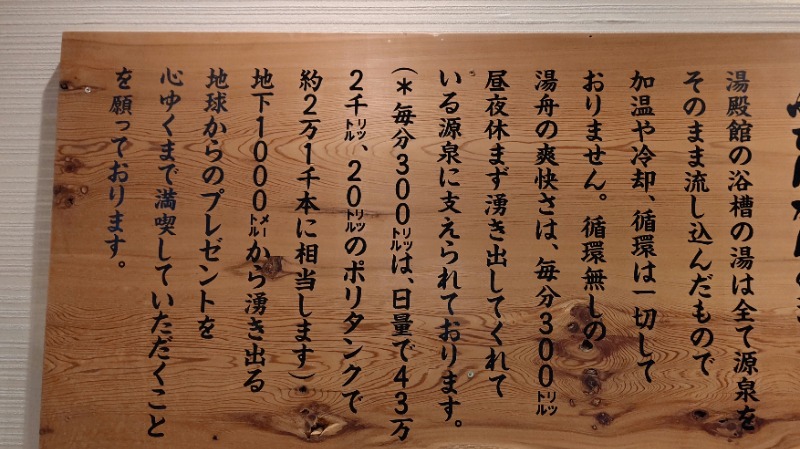 湯殿館の浴槽の湯は全て源泉を
そのまま流し込んだもので
加温や冷却、循環は一切して
おりません。循環無しの
湯舟の爽快さは、毎分300㍑
昼夜休まず湧き出してくれて
いる源泉に支えられております。
(＊毎分300㍑は、日量で43万
2千㍑、20㍑のポリタンクで
約2万1千本に相当します)
地下1000㍍から湧き出る
地球からのプレゼントを
心ゆくまで満喫していただくこと
を願っております。